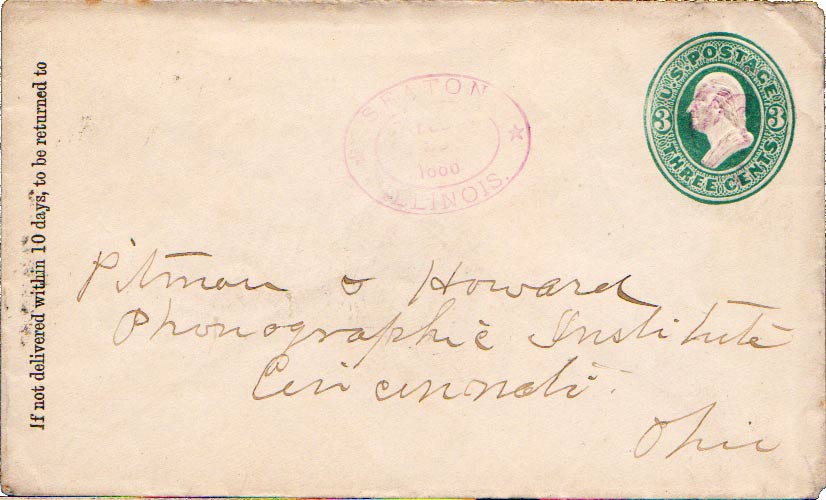 If not delivered within 10 days, to be returned to
SEATON
ILLINOIS.
U.S. POSTAGE
3 3
THREE CENTS
Pitman & Howard
Phonographic Institute
Cincinnati
Ohio